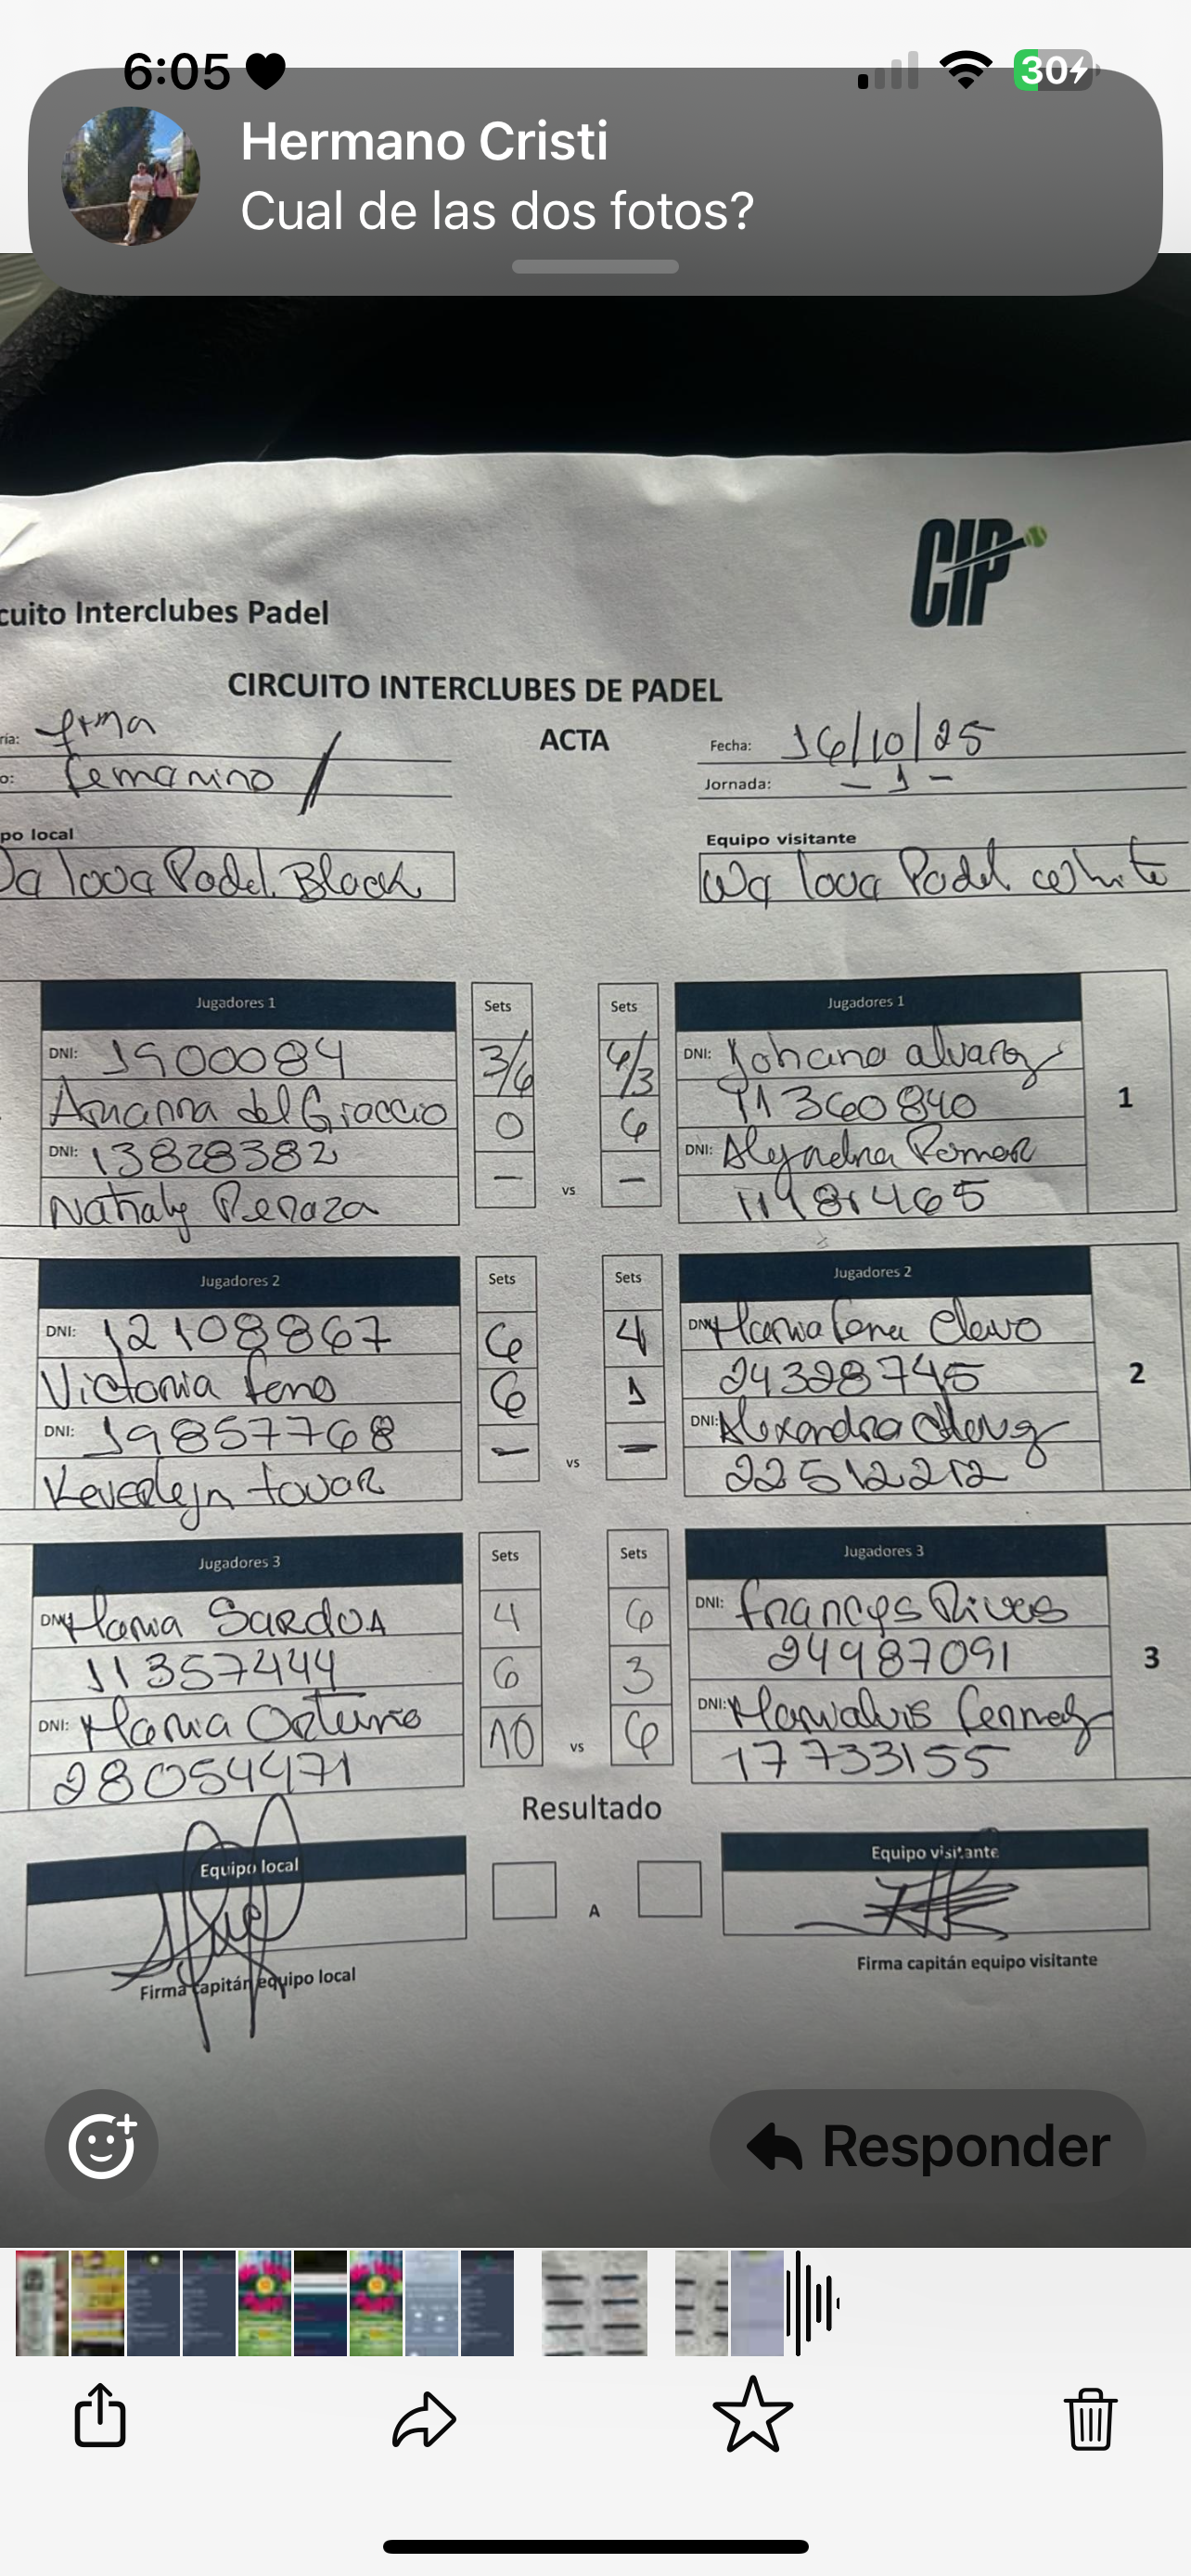 6:05
30
Hermano Cristi
Cual de las dos fotos?
CIP
cuito Interclubes Padel
CIRCUITO INTERCLUBES DE PADEL
ría:
ACTA
Fecha: 16/10/25
o: femenino
Jornada: - 1 -
po local
Equipo visitante
Da lova Padel. Black
Wa lova Padel white
Jugadores 1
Sets
Sets
Jugadores 1
DNI: 1900084
3/6
DNI: Johana alvarez
del Giaccio
11360840
1
0
6
DNI: 13828382
DNI:
Nathaly Peraza
—
vs
—
Jugadores 2
Sets
Sets
Jugadores 2
DNI: 12108867
6
4
DNI: Maria
Victoria
24328745
2
6
1
DNI: 19857768
DNI: Alexandra
tovar
—
vs
—
22512212
Jugadores 3
Sets
Sets
Jugadores 3
DNI: Maria Sardua
4
6
DNI: Francys Rivas
11357444
6
3
24987091
3
DNI: Maria Ortuño
DNI:
28054471
10
vs
6
17733155
Resultado
Equipo local
A
Equipo visitante
Firma capitán equipo local
Firma capitán equipo visitante
Responder